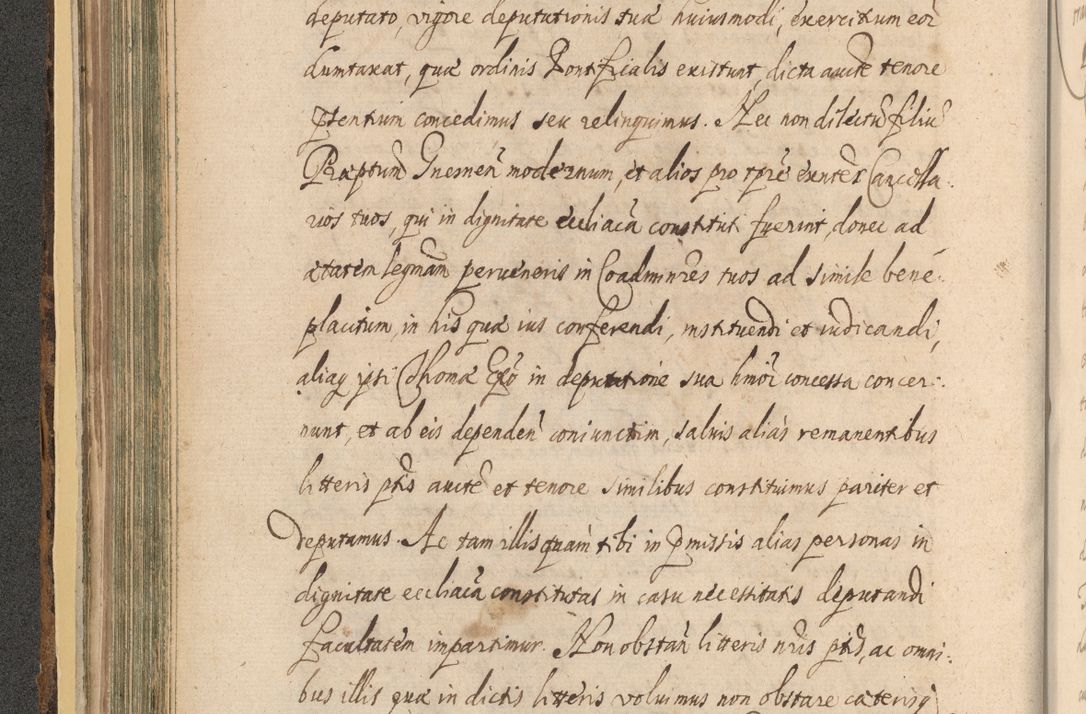 deputato, vigore deputationis tuæ huiusmodi, exercitium eor̃
dumtaxat, quæ ordinis Pontificalis existunt, dicta aucte tenore
p̃tentium concedimus seu relinquimus. Nec non dilectũ filiũ
Præptum Gnesneñ modernum, et alios pro tp̃re exñtes Cancella:
rios tuos, qui in dignitate eccliacã constituti fuerint, donec ad
ætatem legmãm perueneris in Coadmin̄res tuos ad simile bene:
placitum, in his quæ ius conferendi, instituendi et iudicandi,
aliaq ipsi Thomæ Ep̃o in deputatione sua hmõi concessa concer:
nunt, et ab eis dependeñ coniunctim, saluis alias remanentibus
litteris ptis aucte et tenore similibus constituimus pariter et
deputamus. Ac tam illis quam tibi in p̃missis alias personas in
dignitate eccliacã constitutas in casu necessitatis deputandi
facultatem impartimur. Non obstañ litteris nr̃is ptis, ac omni:
bus illis quæ in dictis litteris voluimus non obstare cæterisq